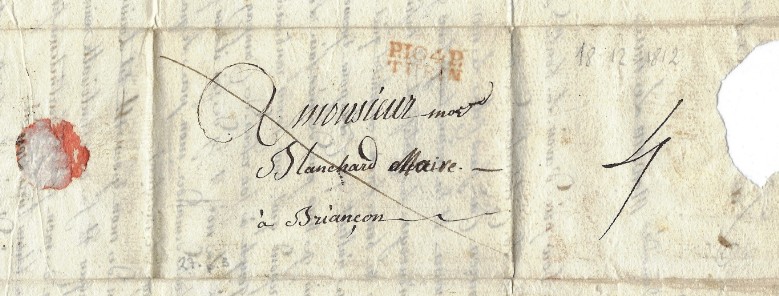 P104P
TURIN
18 12 1812
A monsieur mor
Blanchard Maire
à Briançon
4